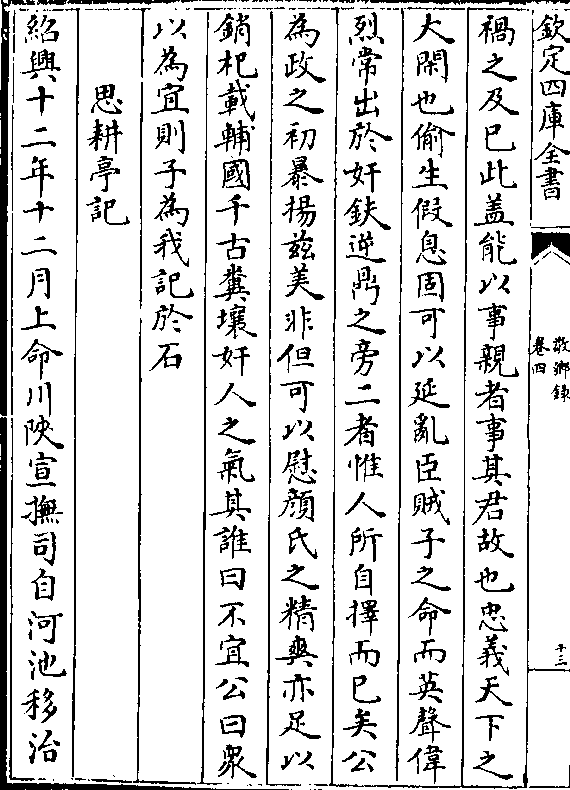 欽定四庫全書
敬鄉録
卷四
十三
禍之及已此盖能以事親者事其君故也忠義天下之
大閑也偷生假息固可以延亂臣賊子之命而英聲偉
烈常出於奸鈇逆鼎之旁二者惟人所自擇而已矣公
為政之初暴揚兹美非但可以慰顔氏之精爽亦足以
銷杞載輔國千古糞壤奸人之氣其誰曰不宜公曰衆
以為宜則子為我記於石
思耕亭記
紹興十二年十二月上命川陜宣撫司自河池移治